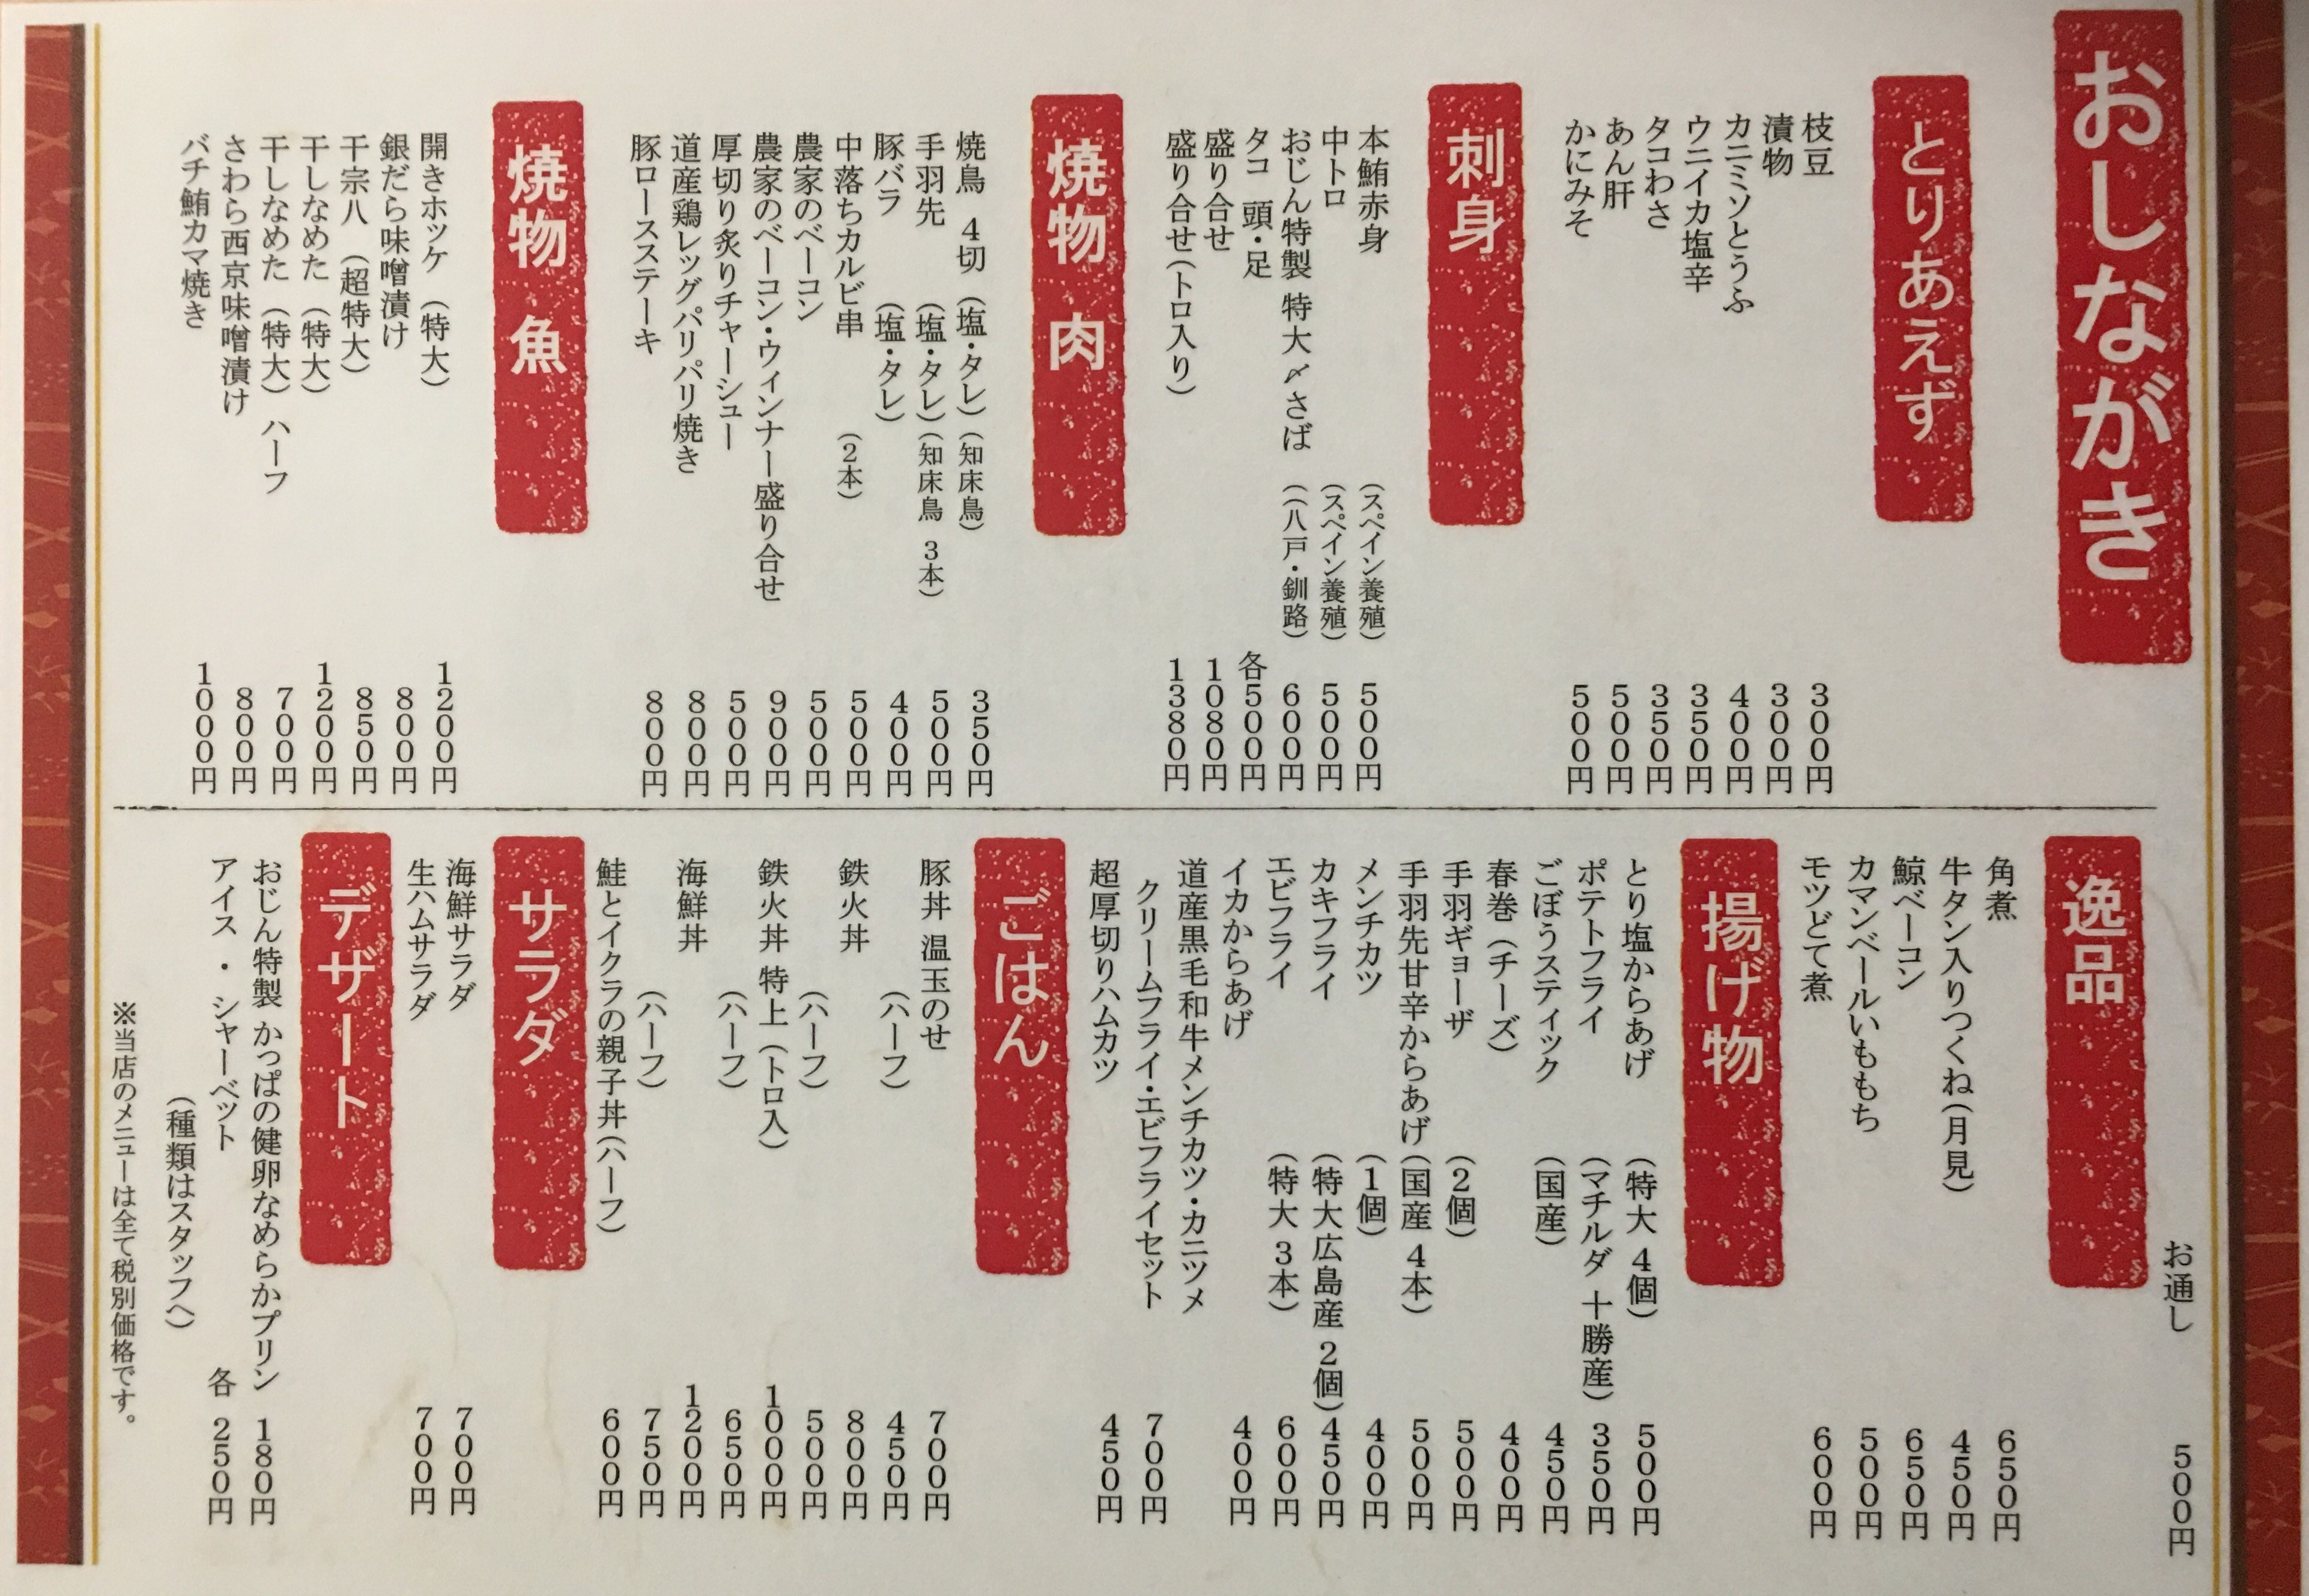 おしながき
とりあえず
枝豆 300円
漬物 300円
カニミソとうふ 400円
ウニイカ塩辛 350円
タコわさ 350円
あん肝 500円
かにみそ 500円
刺身
本鮪赤身 (スペイン養殖) 500円
中トロ (スペイン養殖) 500円
おじん特製 特大〆さば ((八戸・釧路) 600円
タコ 頭・足 各500円
盛り合せ 1080円
盛り合せ(トロ入り) 1380円
焼物 肉
焼鳥 4切 (塩・タレ)(知床鳥) 350円
手羽先 (塩・タレ)(知床鳥 3本) 500円
豚バラ (塩・タレ) 400円
中落ちカルビ串 (2本) 500円
農家のベーコン 500円
農家のベーコン・ウィンナー盛り合せ 900円
厚切り炙りチャーシュー 500円
道産鶏レッグパリパリ焼き 800円
豚ロースステーキ 800円
焼物 魚
開きホッケ (特大) 1200円
銀だら味噌漬け 800円
干宗八 (超特大) 850円
干しなめた (特大) 1200円
干しなめた (特大) ハーフ 700円
さわら西京味噌漬け 800円
バチ鮪カマ焼き 1000円
お通し 500円
逸品
角煮 650円
牛タン入りつくね(月見) 450円
鯨ベーコン 650円
カマンベールいももち 500円
モツどて煮 600円
揚げ物
とり塩からあげ (特大 4個) 500円
ポテトフライ (マチルダ 十勝産) 350円
ごぼうスティック (国産) 450円
春巻 (チーズ) 400円
手羽ギョーザ (2個) 500円
手羽先甘辛からあげ (国産 4本) 500円
メンチカツ (1個) 400円
カキフライ (特大広島産 2個) 450円
エビフライ (特大 3本) 600円
イカからあげ 400円
道産黒毛和牛メンチカツ・カニツメ
クリームフライ・エビフライセット 700円
超厚切りハムカツ 450円
ごはん
豚丼 温玉のせ 700円
(ハーフ) 450円
鉄火丼 800円
(ハーフ) 500円
鉄火丼 特上 (トロ入) 1000円
(ハーフ) 650円
海鮮丼 1200円
(ハーフ) 750円
鮭とイクラの親子丼(ハーフ) 600円
サラダ
海鮮サラダ 700円
生ハムサラダ 700円
デザート
おじん特製 かっぱの健卵なめらかプリン 180円
アイス ・ シャーベット 各 250円
(種類はスタッフへ)
※当店のメニューは全て税別価格です。